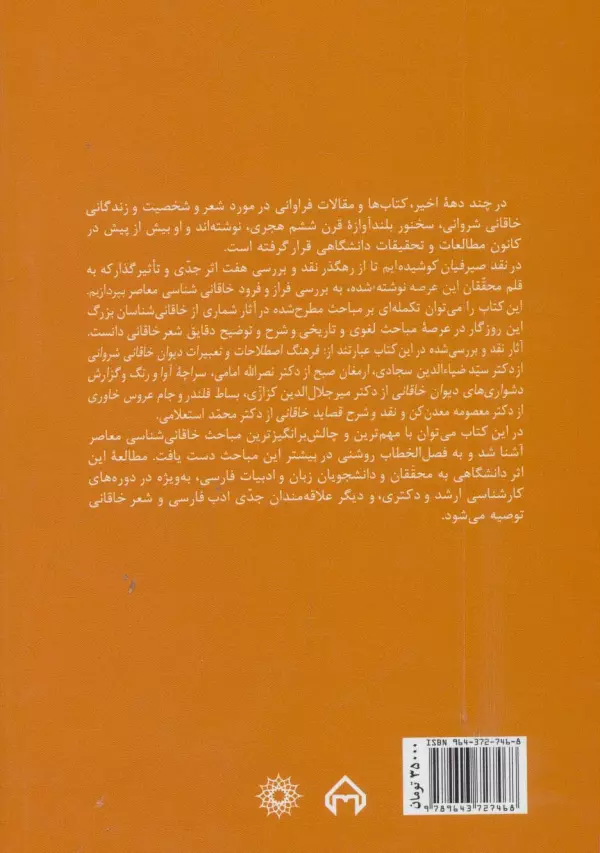 در چند دههٔ اخیر، کتاب‌ها و مقالات فراوانی در مورد شعر و شخصیت و زندگانی
خاقانی شروانی، سخنور بلندآوازهٔ قرن ششم هجری، نوشته‌اند و او بیش از پیش در
کانون مطالعات و تحقیقات دانشگاهی قرار گرفته است.
در نقد صیرفیان کوشیده‌ایم تا از رهگذر نقد و بررسی هفت اثر جدّی و تأثیرگذار که به
قلم محقّقان این عرصه نوشته شده، به بررسی فراز و فرود خاقانی شناسی معاصر بپردازیم.
این کتاب را می‌توان تکمله‌ای بر مباحث مطرح‌شده در آثار شماری از خاقانی‌شناسان بزرگ
این روزگار در عرصهٔ مباحث لغوی و تاریخی و شرح و توضیح دقایق شعر خاقانی دانست.
آثار نقد و بررسی‌شده در این کتاب عبارتند از: فرهنگ اصطلاحات و تعبیرات دیوان خاقانی شروانی
از دکتر سیّد ضیاءالدین سجادی، ارمغان صبح از دکتر نصرالله امامی، سراچهٔ آوا و رنگ و گزارش
دشواری‌های دیوان خاقانی از دکتر میرجلال‌الدین کزازی، بساط قلندر و جام عروس خاوری
از دکتر معصومه معدن‌کن و نقد و شرح قصاید خاقانی از دکتر محمّد استعلامی.
در این کتاب می‌توان با مهم‌ترین و چالش‌برانگیزترین مباحث خاقانی‌شناسی معاصر
آشنا شد و به فصل‌الخطاب روشنی در بیشتر این مباحث دست یافت. مطالعهٔ این
اثر دانشگاهی به محقّقان و دانشجویان زبان و ادبیات فارسی، به‌ویژه در دوره‌های
کارشناسی ارشد و دکتری، و دیگر علاقه‌مندان جدّی ادب فارسی و شعر خاقانی
توصیه می‌شود.
ISBN 964-372-746-8
9 789643 727468
۳۵۰۰۰ تومان